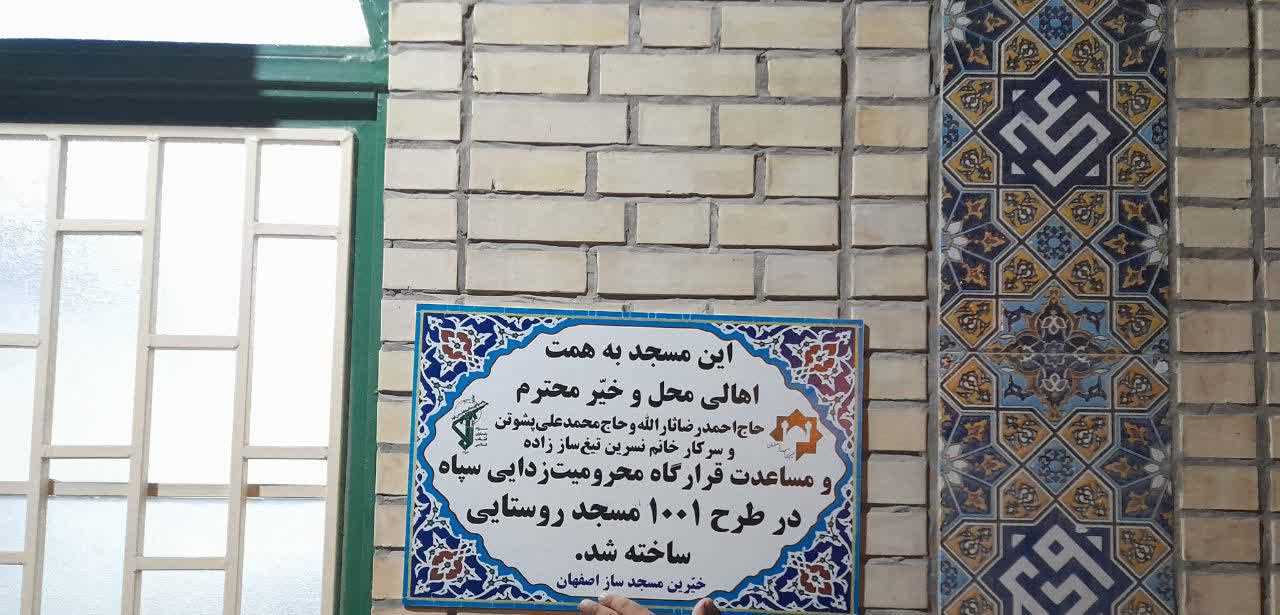 این مسجد به همت
اهالی محل و خیّر محترم
حاج احمدرضا ثارالله و حاج محمدعلی پشوتن
و سرکار خانم نسرین تیغ‌ساز زاده
و مساعدت قرارگاه محرومیت‌زدایی سپاه
در طرح ۱۰۰۱ مسجد روستایی
ساخته شد.
خیّرین مسجد ساز اصفهان